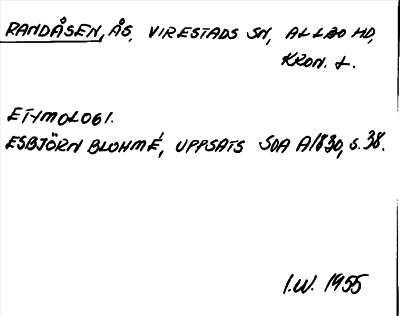 RANDÅSEN, ÅS, VIRESTADS SN, ALLBO HD,
KRON. L.
ETYMOLOGI.
ESBJÖRN BLOHMÉ, UPPSATS SOA A1830, S. 38.
I.W. 1955